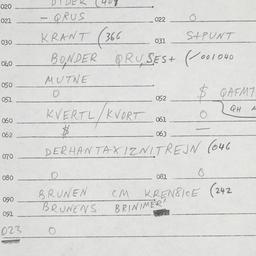 020 DIDER (404
021 - QRUS 022 O
030 KRANT (366 031 S+PUNT
040 BONDER QRU,SES+ (/001040
050 MUTNE
051 O 052 $ QAFM7
060 KVERTL/KVORT 061 O QH
062 $ 063 —
070 DERHANTAXIZNITREJN (046
080 O 081 O
090 BRUNEN CM KRENSICE (242
091 BRUNENS BRINIMER
023 O